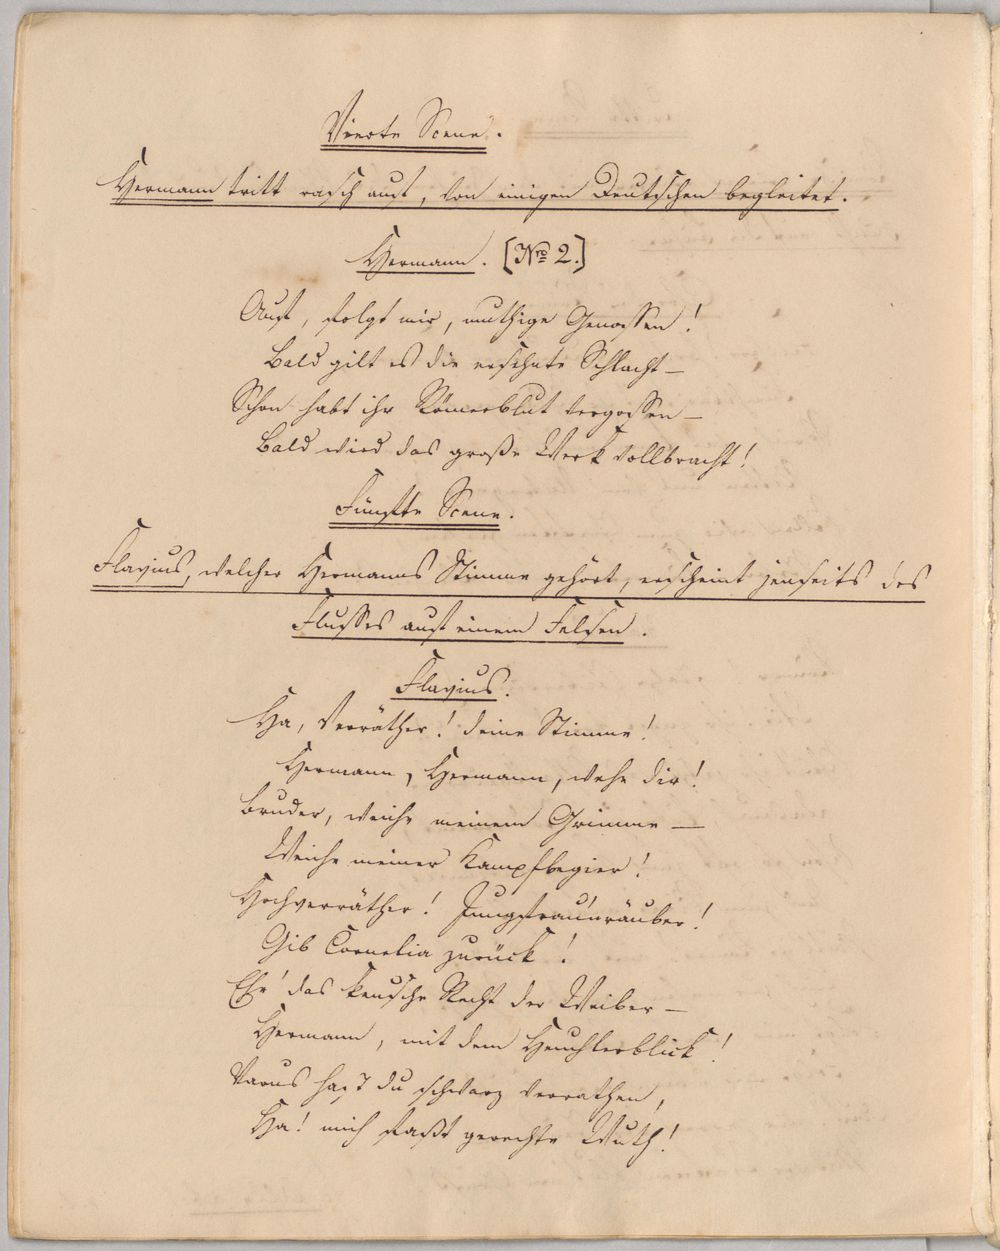 Vierte Scene.
Hermann tritt rasch auf, von einigen Deutschen begleitet.
Hermann. [Nro 2.]
Auf, folgt mir, muthige Genossen!
Bald gilt es die ersehnte Schlacht –
Schon habt ihr Römerblut vergossen –
Bald wird das große Werk vollbracht!
Fünfte Scene.
Flavius, welcher Hermanns Stimme gehört, erscheint jenseits des
Flusses auf einem Felsen.
Flavius.
Ha, Verräther! deine Stimme!
Hermann, Hermann, wehe dir!
Bruder, weiche meinem Grimme –
Weiche meiner Kampfbegier!
Hochverräther! Jungfraunräuber!
Gib Cornelia zurück!
Ehr' das keusche Recht der Weiber –
Hermann, mit dem Heuchlerblick!
Varus hast du schwarz verrathen,
Ha! mich faßt gerechte Wuth!